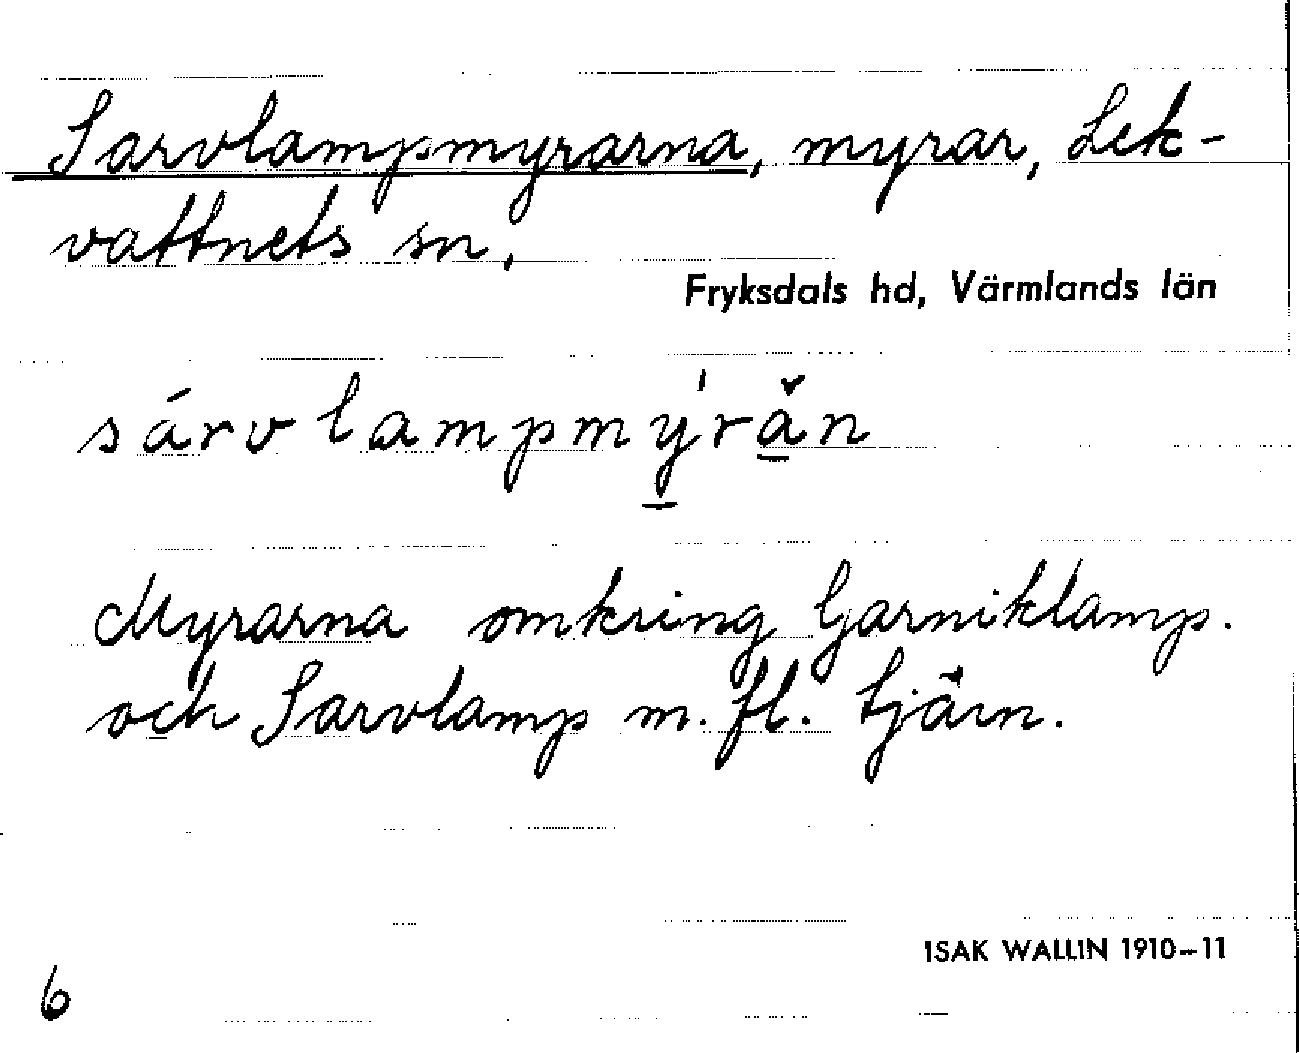 Sarvlampmyrarna, myrar, Lek-
vattnets sn.
Fryksdals hd, Värmlands län
sárvlampmý̱rà̱n
Myrarna omkring Garniklamp.
och Sarvlamp m. fl. tjärn.
ISAK WALLIN 1910-11
6